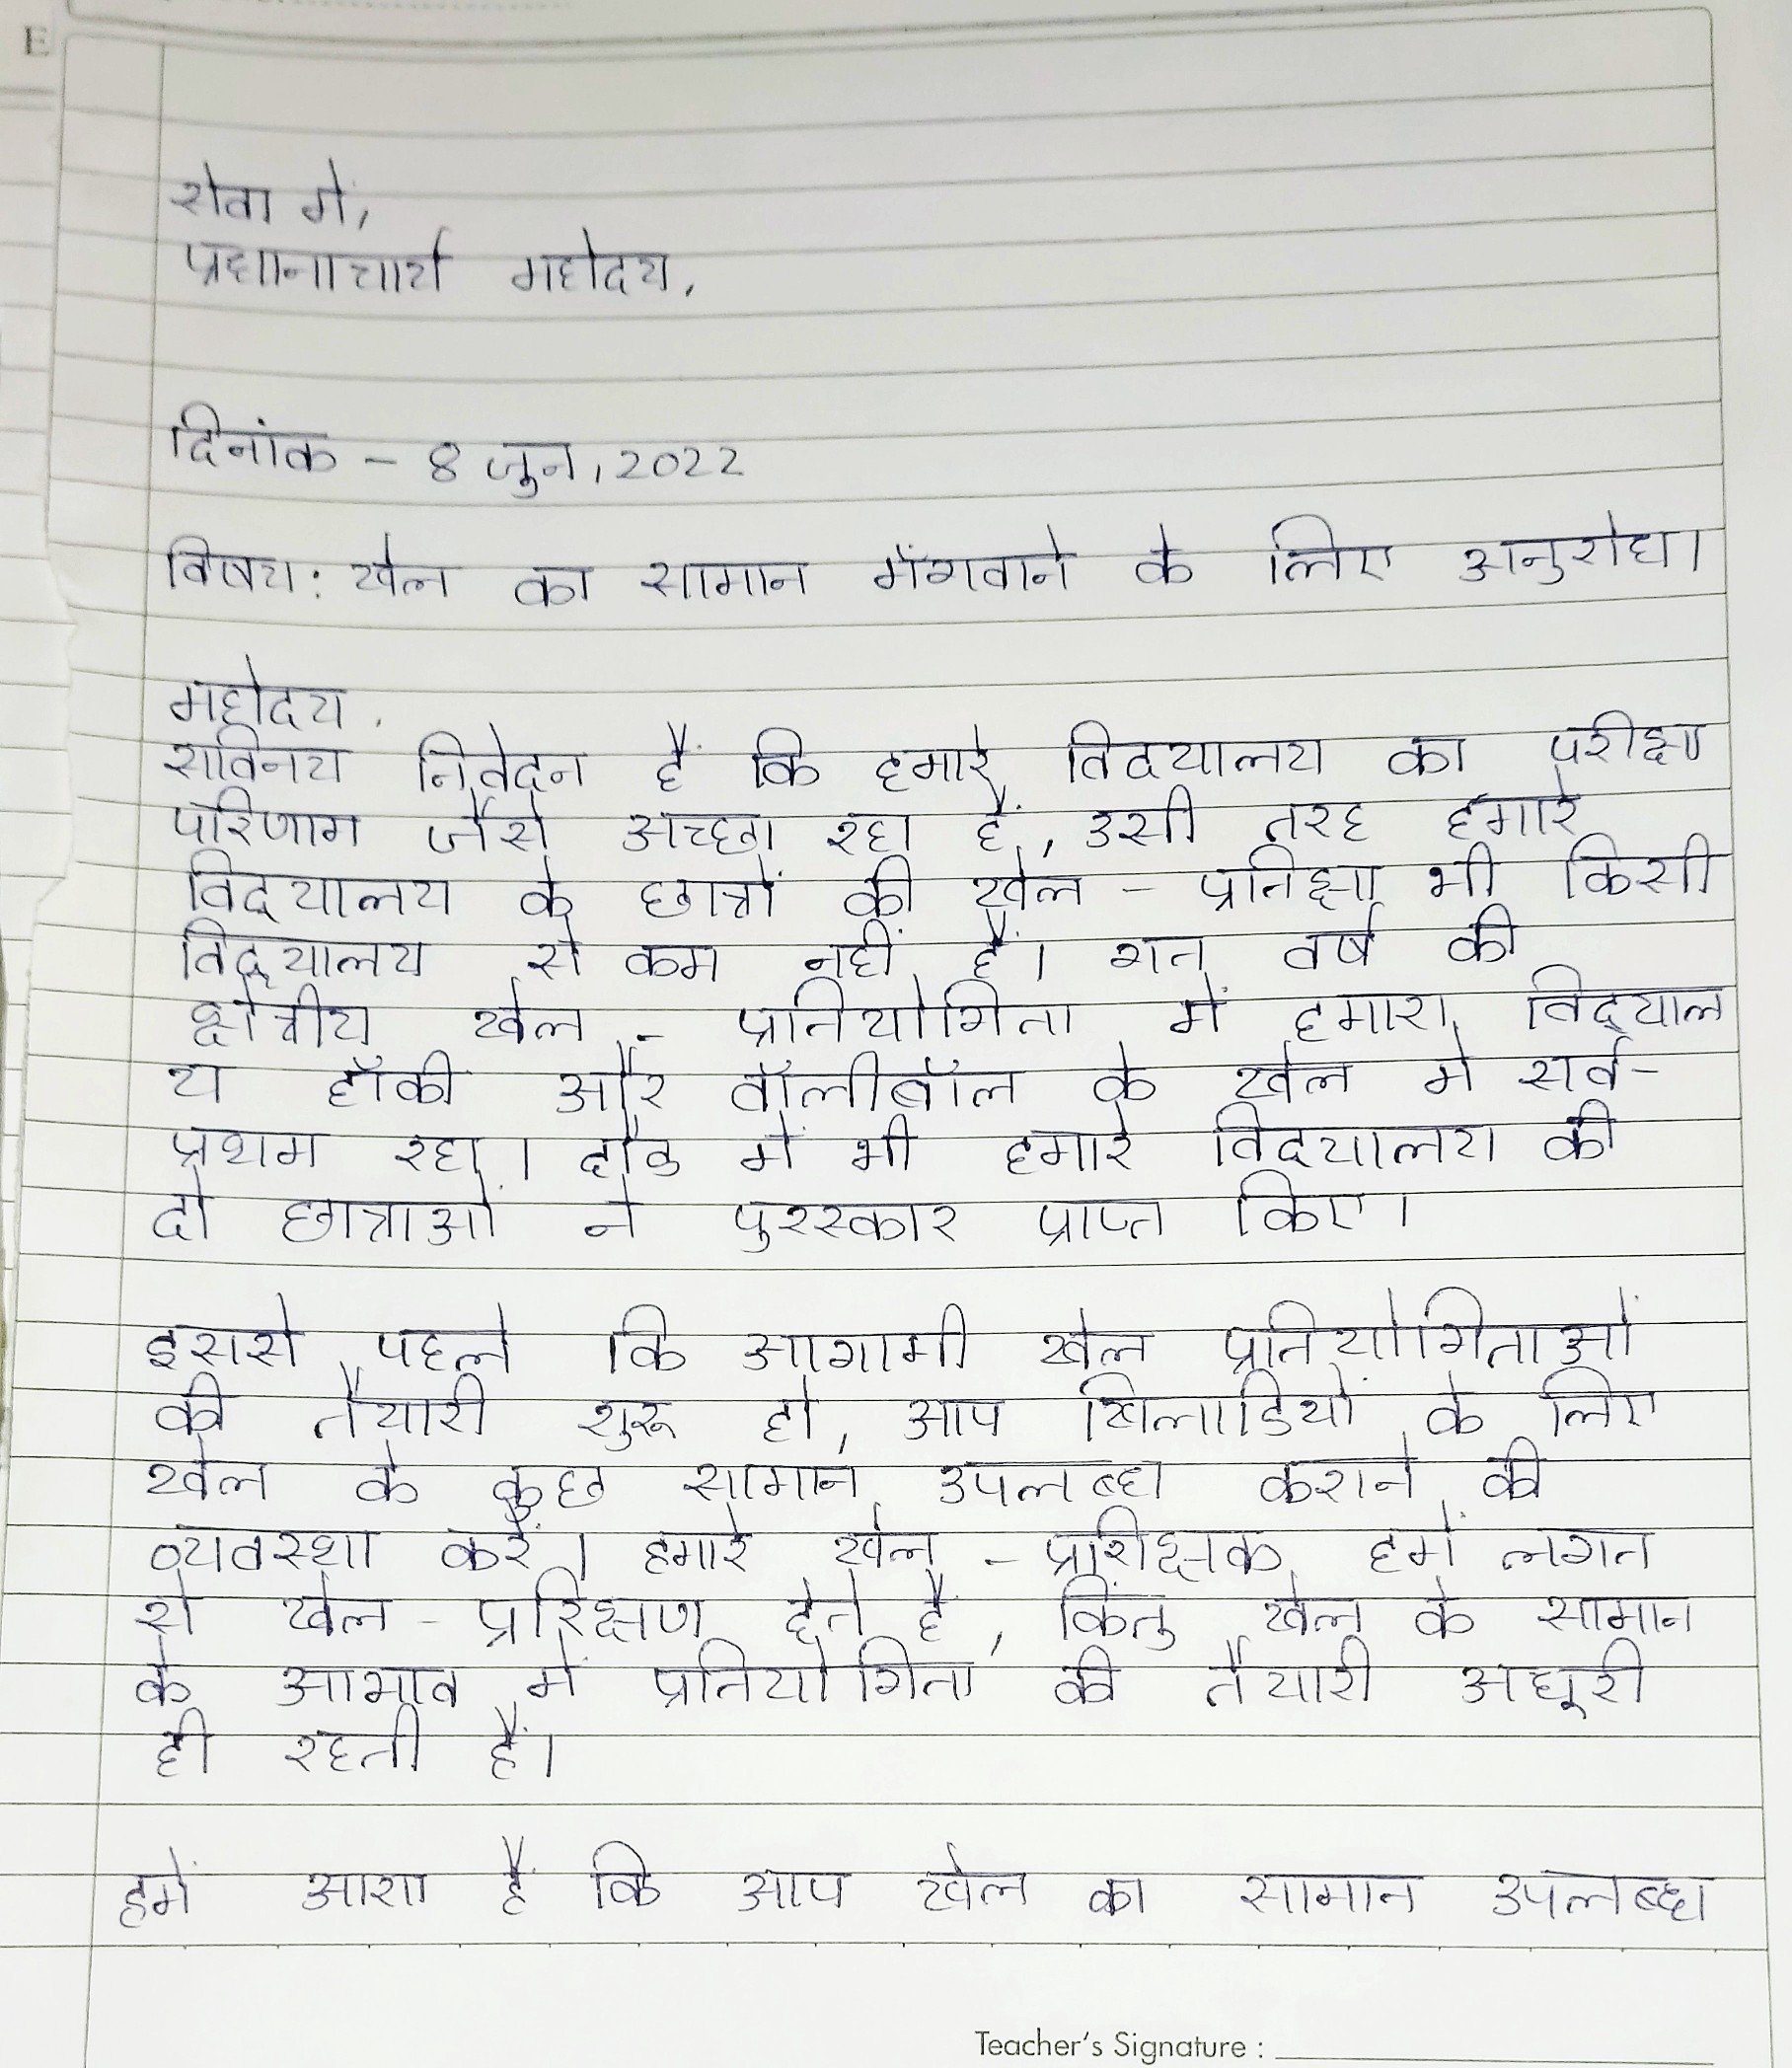 E
सेवा में,
प्रधानाचार्य महोदय,
दिनांक - 8 जुन, 2022
विषय: खेल का सामान मँगवाने के लिए अनुरोध।
महोदय,
सविनय निवेदन है कि हमारे विदयालय का परीक्षा
परिणाम जैसे अच्छा रहा है, उसी तरह हमारे
विद्यालय के छात्रों की खेल - प्रतिक्षा भी किसी
विद्यालय से कम नहीं हैं। गत वर्ष की
क्षेत्रीय खेल - प्रतियोगिता में हमारा विद्याल
य हॉकी और वॉलीबॉल के खेल में सर्व-
प्रथम रहा। दौड में भी हमारे विदयालय की
दो छात्राओं ने पुरस्कार प्राप्त किए।
इससे पहले कि आगामी खेल प्रतियोगिताओं
की तैयारी शुरू हो, आप खिलाडियों के लिए
खेल के कुछ सामान उपलब्ध कराने की
व्यवस्था करें। हमारे खेल - प्रशिक्षक हमें लगन
से खेल - प्ररिक्षण देते है, किंतु खेल के सामान
के आभाव में प्रतियोगिता की तैयारी अधूरी
ही रहती हैं।
हमें आशा हैं कि आप खेल का सामान उपलब्ध
Teacher's Signature :